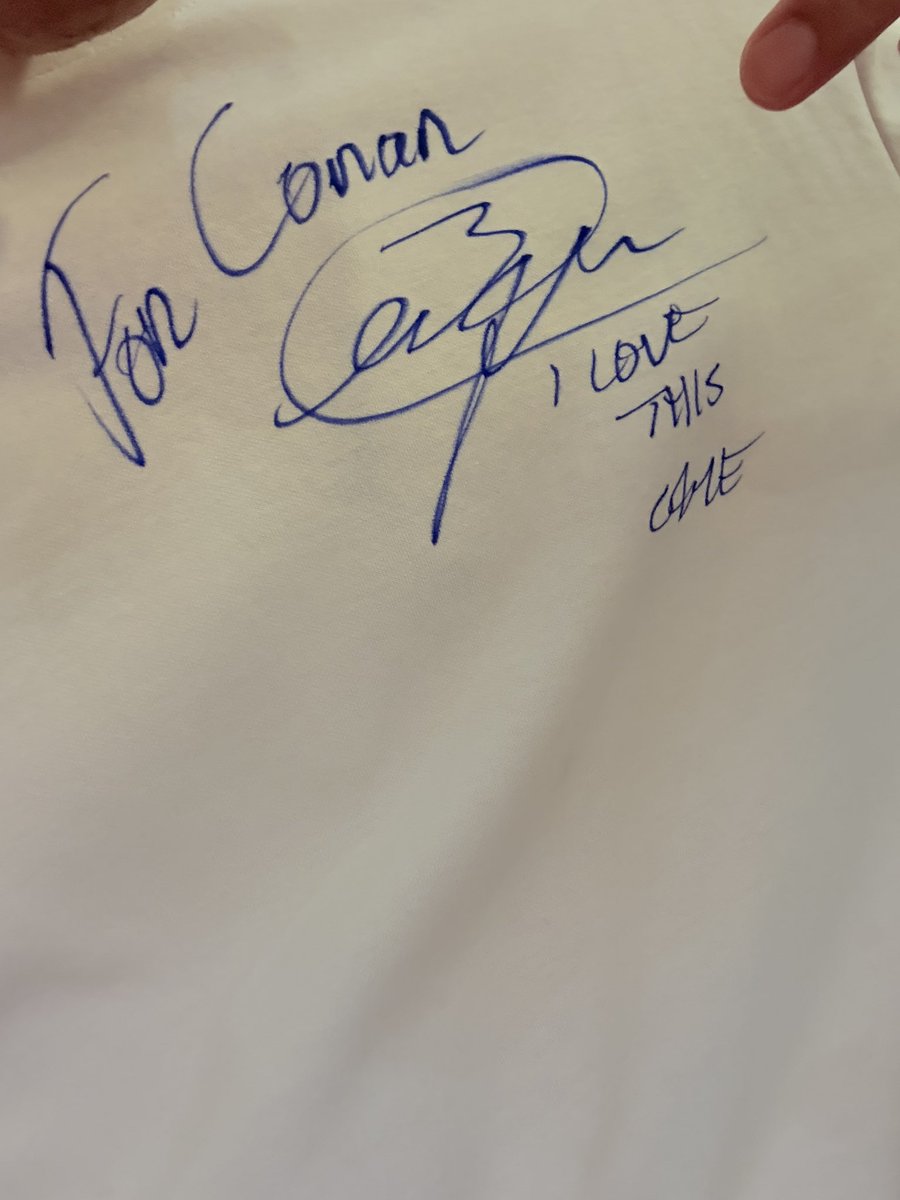 For Conan
I LOVE
THIS
GAME